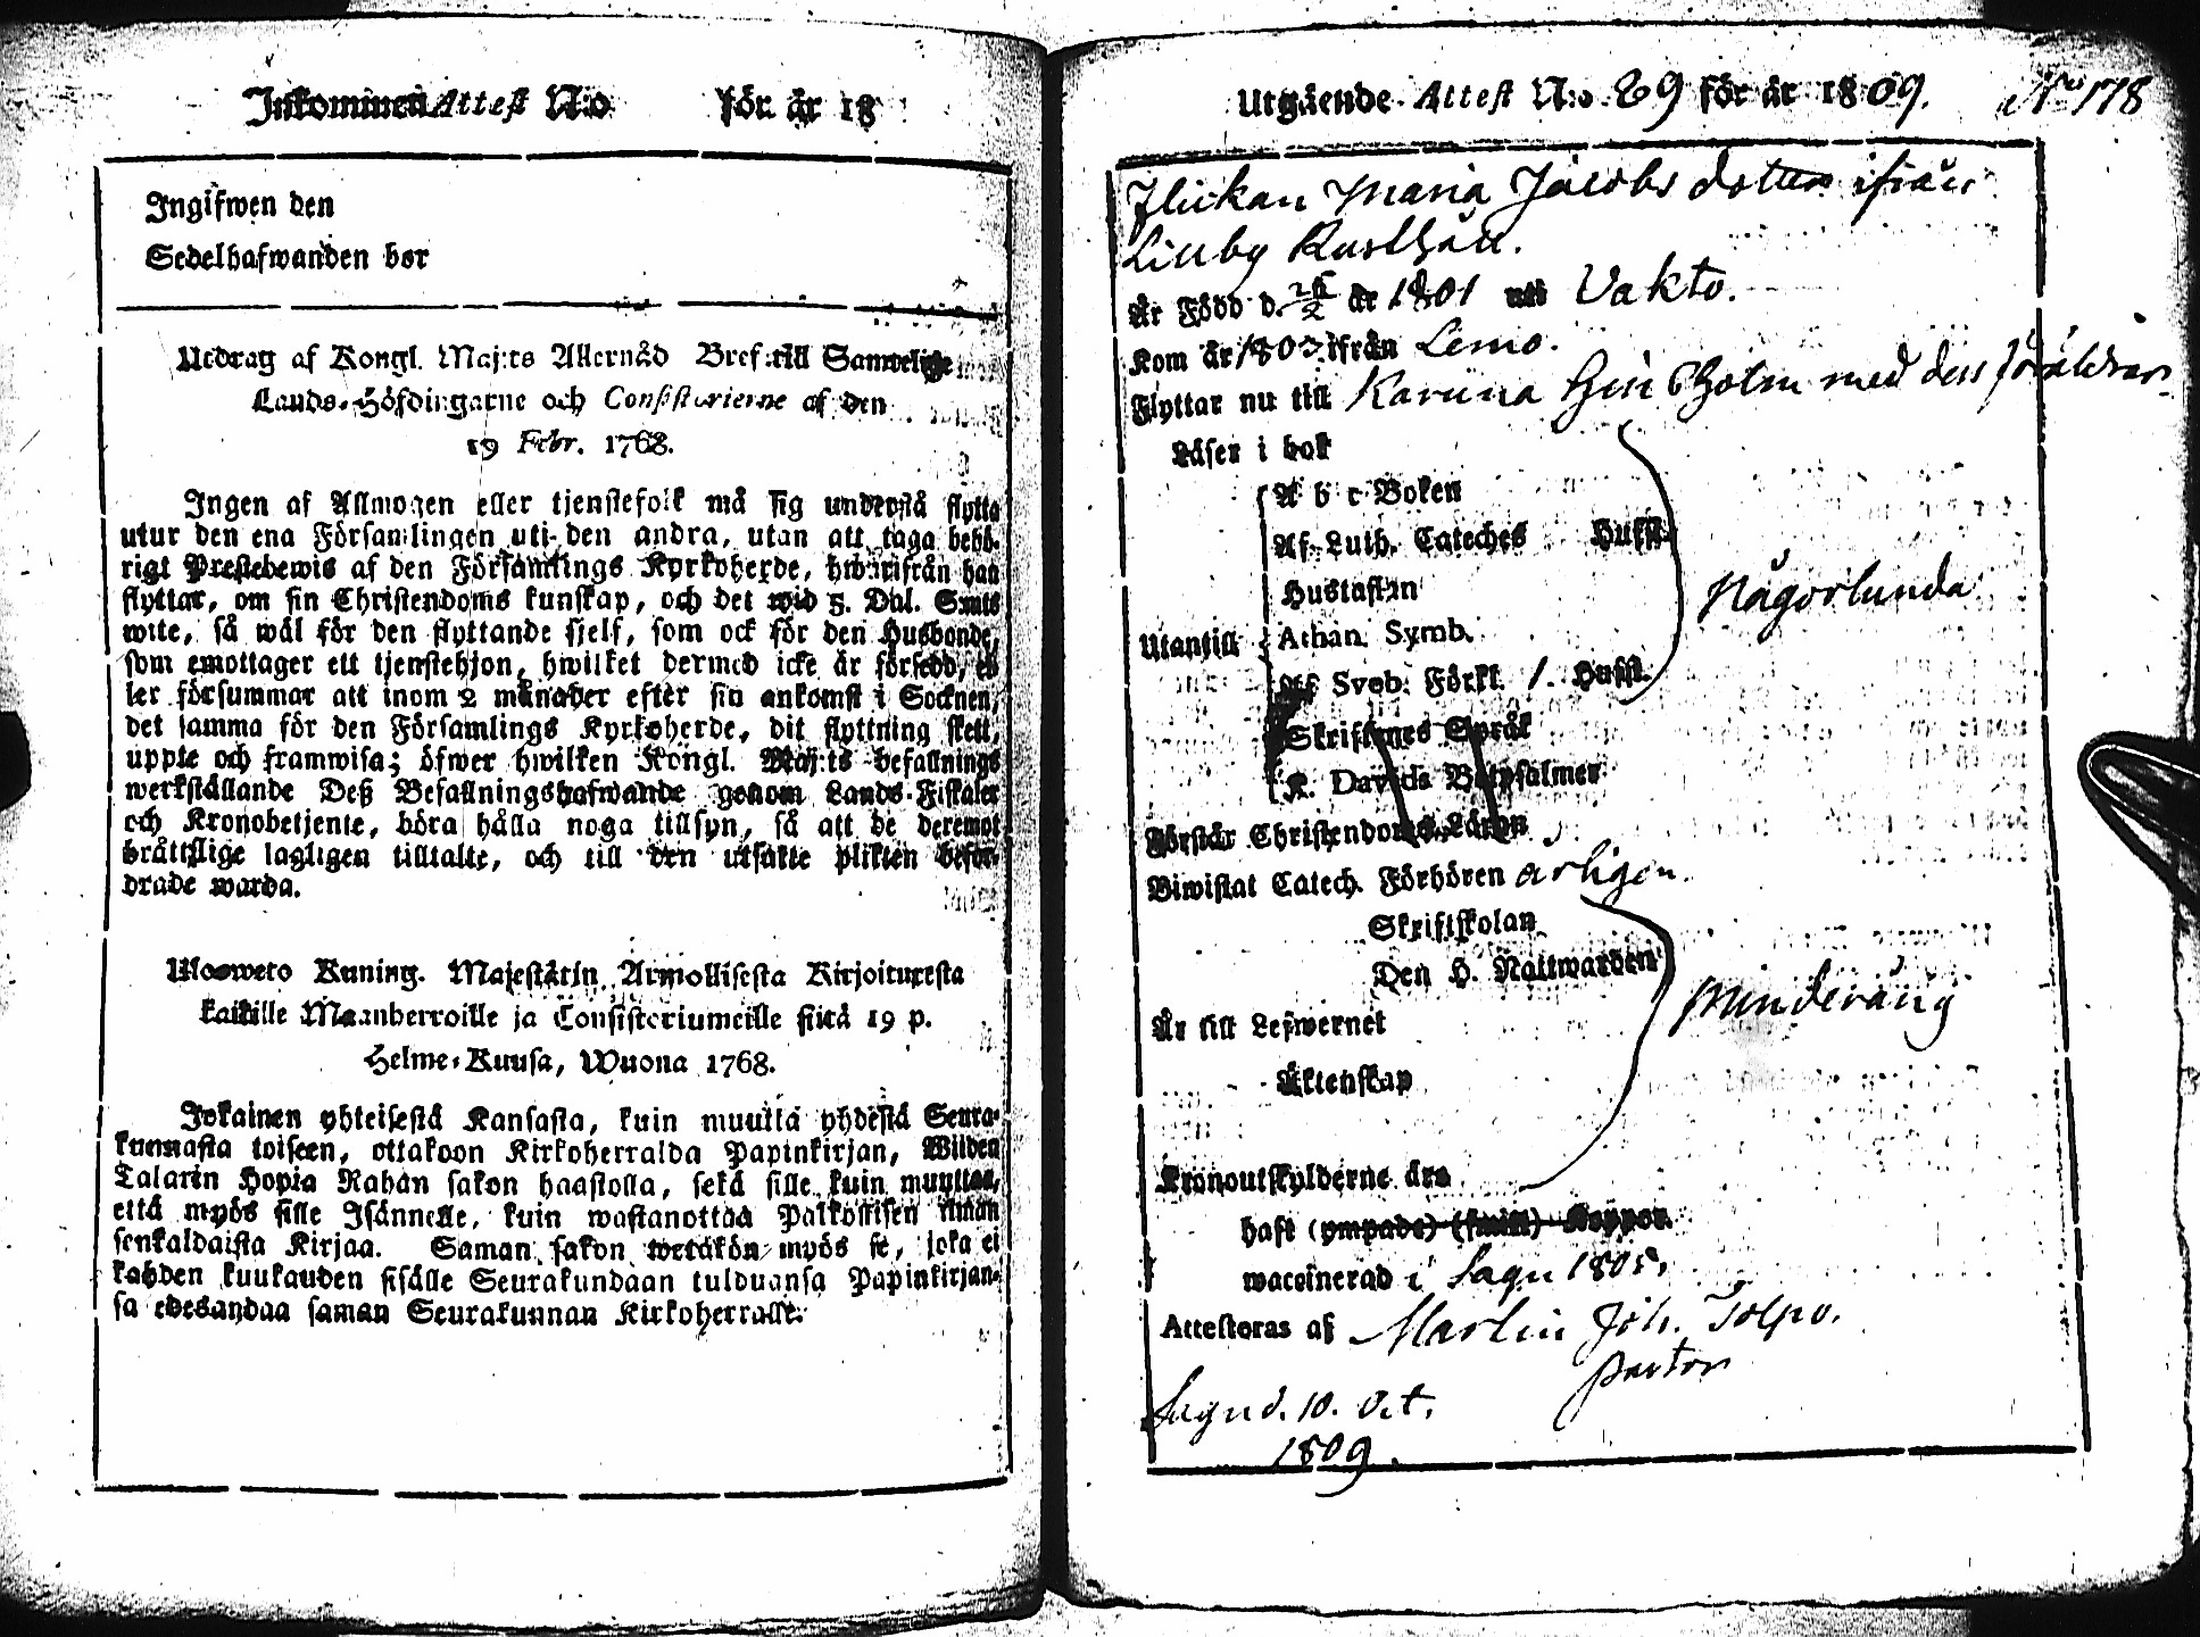 Inkommen Attest N:o för år 18
Ingifwen den
Sedelhafwanden bor
Utdrag af Kongl. Maj:ts Allernåd Bref till Samtelige
Lands-Höfdingarne och Consistorierne af den
19 Febr. 1768.
Ingen af Allmogen eller tjenstefolk må sig understå flytta
utur den ena Församlingen uti den andra, utan att taga behö-
rigt Prestebewis af den Församlings Kyrkoherde, hwarifrån han
flyttar, om sin Christendoms kunskap, och det wid 5. Dal. Smts
wite, så wäl för den flyttande sjelf, som ock för den Husbonde,
som emottager ett tjenstehjon, hwilket dermed icke är försedd, el-
ler försummar att inom 2 månader efter sin ankomst i Socknen,
det samma för den Församlings Kyrkoherde, dit flyttning skett,
uppte och framwisa; öfwer hwilken Kongl. Maj:ts befallnings
werkställande Deß Befallningshafwande genom Lands-Fiskaler
och Kronobetjente, böra hålla noga tillsyn, så att de deremot
bråttslige lagligen tilltalte, och till den utsatte plikten befor-
drade warda.
Ulosweto Kuning. Majestätin Armollisesta Kirjoituxesta
kaikille Maanherroille ja Consistoriumeille siitä 19 p.
Helme-Kuusa, Wuona 1768.
Jokainen yhteisestä Kansasta, kuin muutta yhdestä Seura-
kunnasta toiseen, ottakoon Kirkoherralda Papinkirjan, Wiiden
Talarin Hopia Rahan sakon haastolla, sekä sille kuin muuttaa,
että myös sille Isännelle, kuin wastanottaa Palkollisen ilman
senkaldaista Kirjaa. Saman sakon wetäkön myös se, joka ei
kahden kuukauden sisälle Seurakundaan tulduansa Papinkirjan-
sa edesandaa saman Seurakunnan Kirkoherralle.
Utgående Attest N:o 69 för år 1809. No 178
Flickan Maria Jacobs dotter ifrån
Linby Rusthåll.
Är Född d. 26/2 år 1801 uti Vakto.
Kom år 1803 ifrån Lemo.
Flyttar nu till Karuna Holm med dess föräldrar
Läser i bok
A b c Boken
Af Luth. Cateches Hufst.
Hustaflan
Utantill Athan. Symb.
Af Sveb. Förkl. 1. Hufst.
Skriftenes Språk
K. Davids Botpsalmer
Någorlunda
Förstår Christendoms Läran
Biwistat Catech. Förhören årligen.
Skriftskolan
Den H. Nattwarden
Är till Lefwernet
Minderårig
Äktenskap
Kronoutskylderne äro
haft (ympade) (smitt) Koppor.
waccinerad i Sagu 1805.
Attesteras af Martin Joh. Tolpo.
Pastor
Sagu d. 10. Oct.
1809.